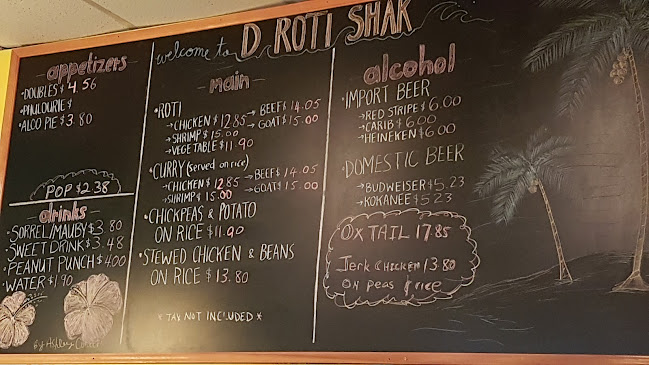 welcome to D ROTI SHAK
appetizers
• DOUBLES $ 4.56
• PHULOURIE $
• ALOO PIE $ 3.80
POP $2.38
drinks
• SORREL/MAUBY $ 3.80
• SWEET DRINK $ 3.48
• PEANUT PUNCH $ 4.00
• WATER $ 1.90
main
• ROTI
→ CHICKEN $ 12.85 → BEEF $ 14.05
→ SHRIMP $ 15.00 → GOAT $ 15.00
→ VEGETABLE $ 11.90
• CURRY (served on rice)
→ CHICKEN $ 12.85 → BEEF $ 14.05
→ SHRIMP $ 15.00 → GOAT $ 15.00
• CHICKPEAS & POTATO
ON RICE $ 11.90
• STEWED CHICKEN & BEANS
ON RICE $ 13.80
* TAX NOT INCLUDED *
alcohol
• IMPORT BEER
→ RED STRIPE $ 6.00
→ CARIB $ 6.00
→ HEINEKEN $ 6.00
• DOMESTIC BEER
→ BUDWEISER $ 5.23
→ KOKANEE $ 5.23
OX TAIL 17.85
Jerk CHICKEN 13.80
ON Peas & rice
By Ashley